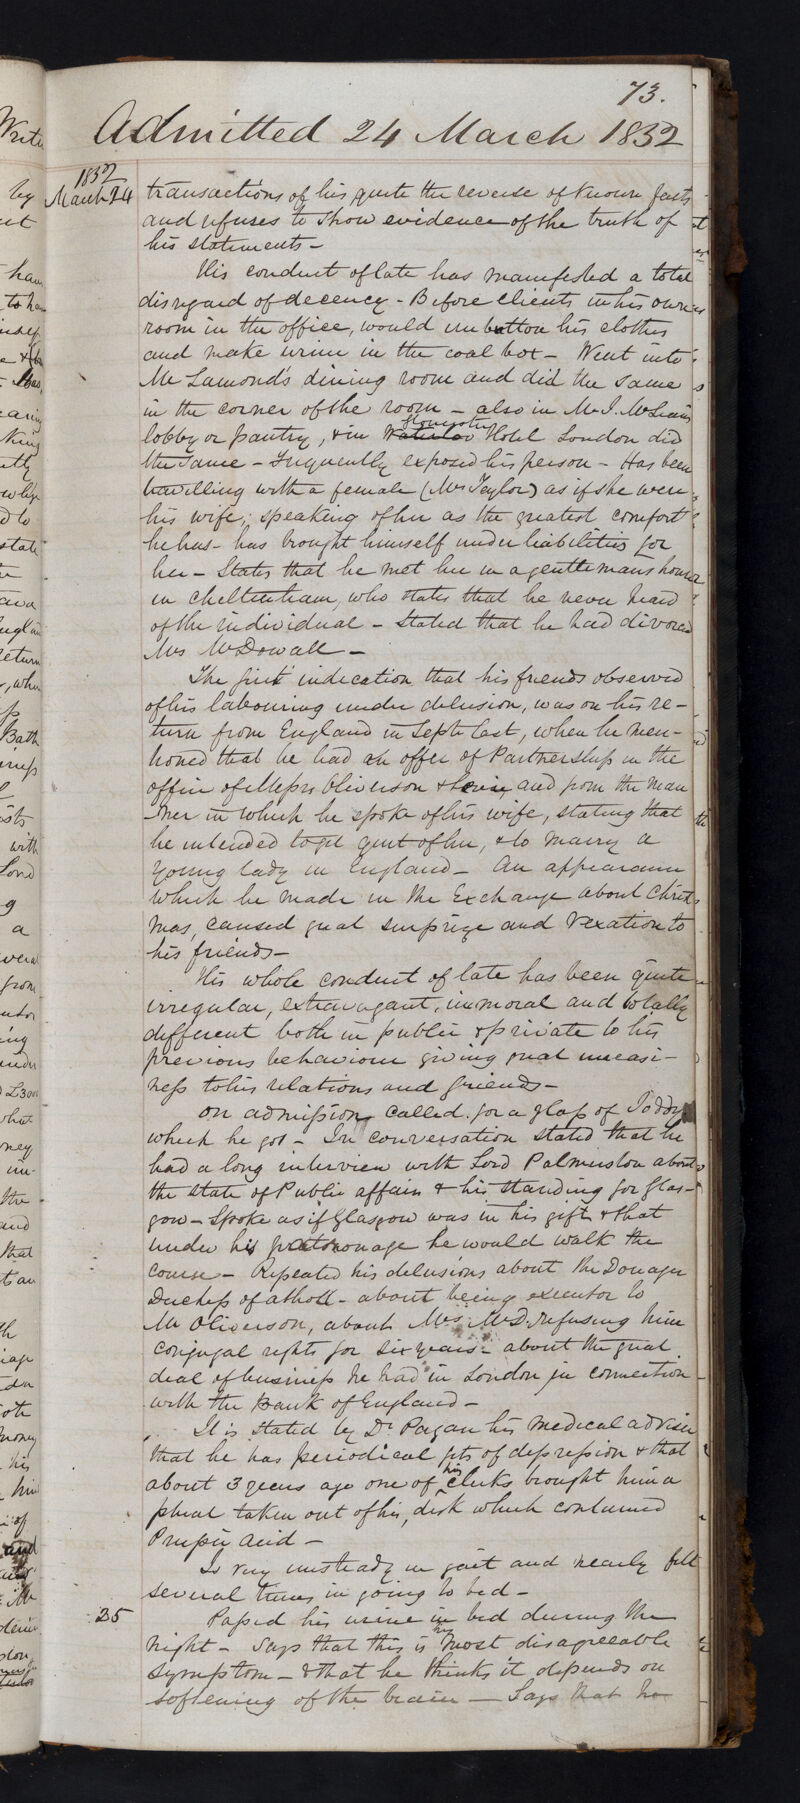 73.
Admitted 24 March 1832
1832
March 24 transactions of his quite the reverse of known facts
and refuses to show evidence of the truth of
his statements -
His conduct of late has manifested a total
disregard of decency - Before clients in his own
room in the office, would unbutton his clothes
and make urine in the coal box - Went into
Mr Lamond's dining room and did the same
in the corner of the room - also in Mr J. McLean's
lobby or pantry, & in Waterloo Hotel London did
the same - Frequently exposed his person - Has been
travelling with a female (Mrs Taylor) as if she were
his wife, speaking of her as the greatest comfort
he has - has brought himself under liabilities for
her - States that he met her in a gentlemans house
in Cheltenham, who states that he never heard
of the individual - Stated that he had divorced
Mrs McDowall -
The first indication that his friends observed
of his labouring under delusion, was on his re-
turn from England in Septr last, when he men-
tioned that he had an offer of Partnership in the
office of Messrs Oliverson & and from the man
-ner in which he spoke of his wife, stating that
he intended to get quit of her, & to marry a
young lady in England - An appearance
which he made in the Exchange about Christ
mas, caused great surprize and vexation to
his friends -
His whole conduct of late has been quite
irregular, extravagant, immoral and totally
different both in public & private to his
previous behaviour giving great uneasi-
ness to his relations and friends -
On admission called for a glass of Toddy
which he got - In conversation stated that he
had a long interview with Lord Palmerston about
the state of Public affairs & his standing for Glas-
gow - Spoke as if Glasgow was in his gift & that
under his patronage he would walk the
course - Repeated his delusions about the Douager
Duchess of Atholl - about being executor to
Mr Oliverson, about Mrs McD. refusing him
conjugal rights for six years - about the great
deal of business he had in London in connection
with the Bank of England -
It is stated by Dr Pagan his medical adviser
that he has periodical fits of depression & that
about 3 years ago one of his clerks brought him a
phial taken out of his, desk which contained
Prussic acid -
Is very unsteady in gait and nearly fell
several times in going to bed -
25 Passed his urine in bed during the
night - Says that this is his most disagreeable
symptom - & that he thinks it depends on
softening of the brain - Says that he